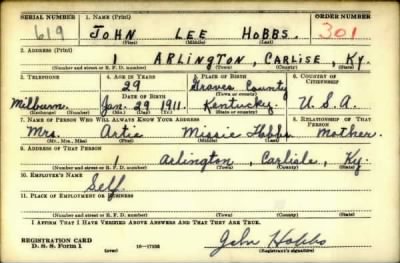 SERIAL NUMBER 1. NAME (Print) ORDER NUMBER
619 JOHN LEE HOBBS. 301
(First) (Middle) (Last)
2. ADDRESS (Print)
1 ARLINGTON, CARLISE, KY.
(Number and street or R. F. D. number) (Town) (County) (State)
3. TELEPHONE 4. AGE IN YEARS 5. PLACE OF BIRTH 6. COUNTRY OF CITIZENSHIP
29 Graves County
DATE OF BIRTH (Town or county)
Milburn. Jan. 29 1911. Kentucky. U. S. A.
(Exchange) (Number) (Mo.) (Day) (Yr.) (State or country)
7. NAME OF PERSON WHO WILL ALWAYS KNOW YOUR ADDRESS 8. RELATIONSHIP OF THAT PERSON
Mrs. Artie Missie Hobbs Mother.
(Mr., Mrs., Miss) (First) (Middle) (Last)
9. ADDRESS OF THAT PERSON
1 Arlington, Carlisle, Ky.
(Number and street or R. F. D. number) (Town) (County) (State)
10. EMPLOYER'S NAME
Self
11. PLACE OF EMPLOYMENT OR BUSINESS
(Number and street or R. F. D. number) (Town) (County) (State)
I AFFIRM THAT I HAVE VERIFIED ABOVE ANSWERS AND THAT THEY ARE TRUE.
REGISTRATION CARD
D. S. S. Form 1 John Hobbs
(Registrant's signature)